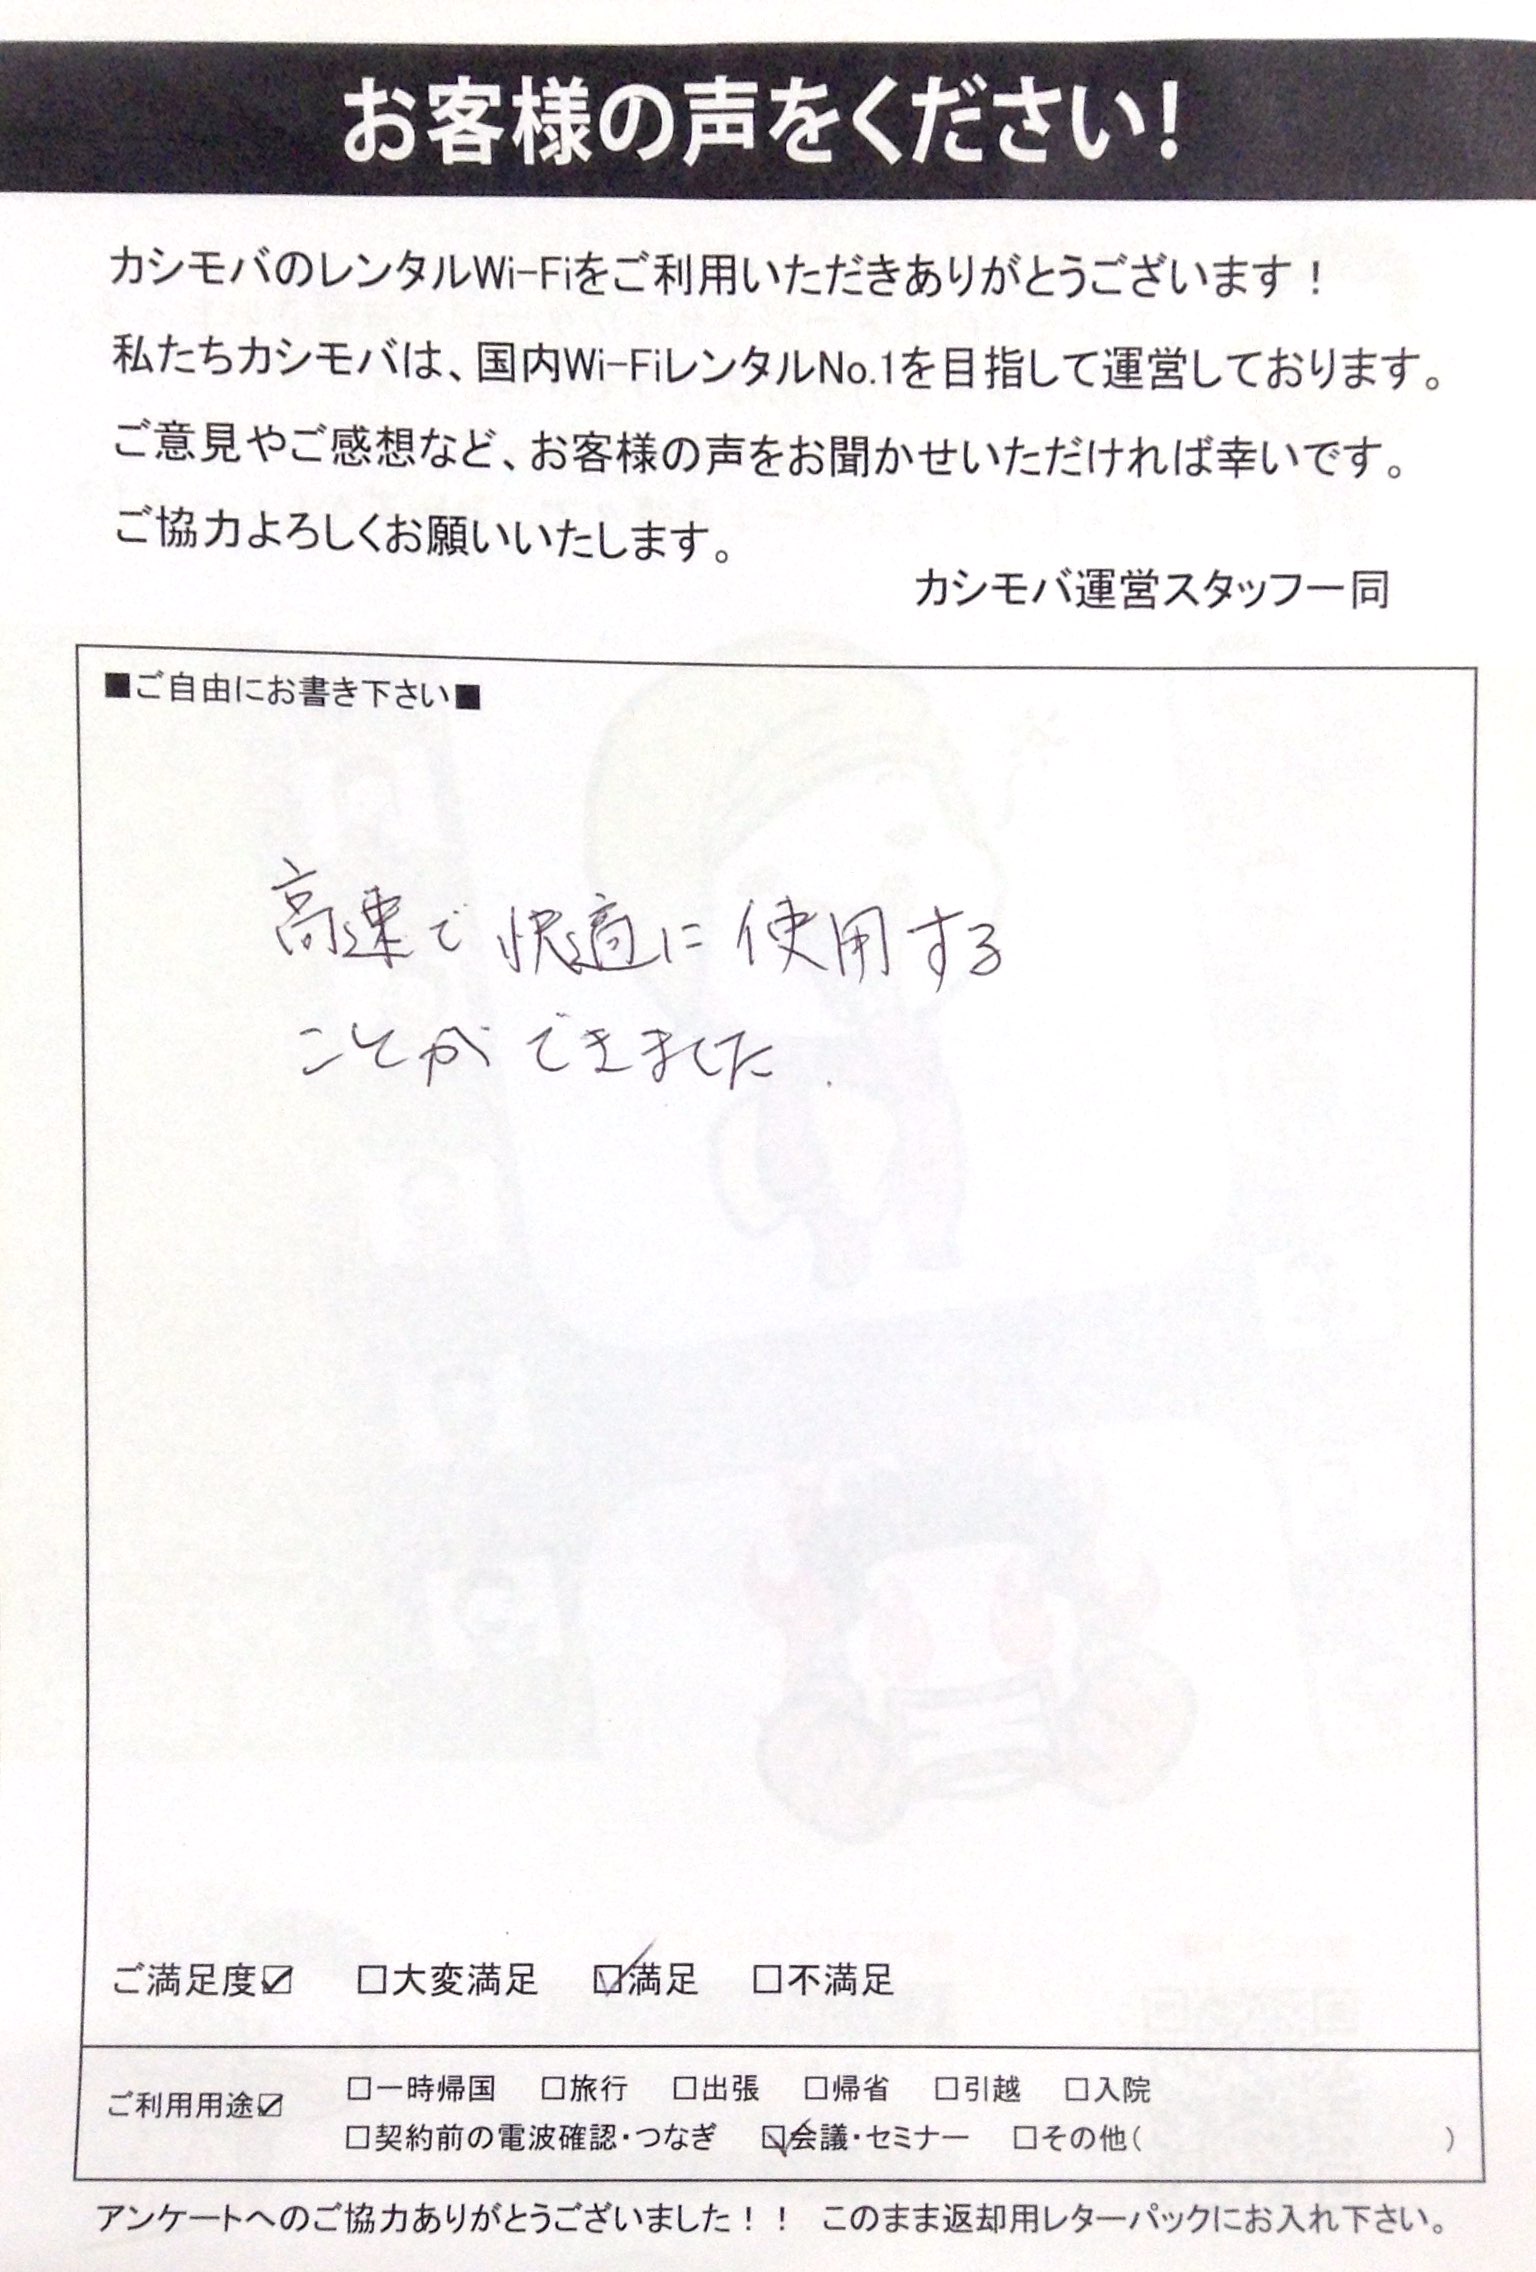 お客様の声をください!
カシモバのレンタルWi-Fiをご利用いただきありがとうございます！
私たちカシモバは、国内Wi-FiレンタルNo.1を目指して運営しております。
ご意見やご感想など、お客様の声をお聞かせいただければ幸いです。
ご協力よろしくお願いいたします。
カシモバ運営スタッフ一同
■ご自由にお書き下さい■
高速で快適に使用する
ことができました.
ご満足度☑ □大変満足 ☑満足 □不満足
ご利用用途☑ □一時帰国 □旅行 □出張 □帰省 □引越 □入院
□契約前の電波確認・つなぎ ☑会議・セミナー □その他( )
アンケートへのご協力ありがとうございました！！ このまま返却用レターパックにお入れ下さい。